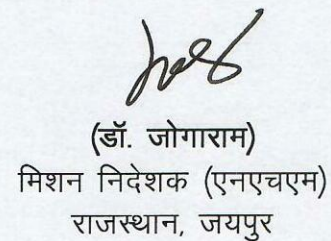 (डॉ. जोगाराम)
मिशन निदेशक (एनएचएम)
राजस्थान, जयपुर